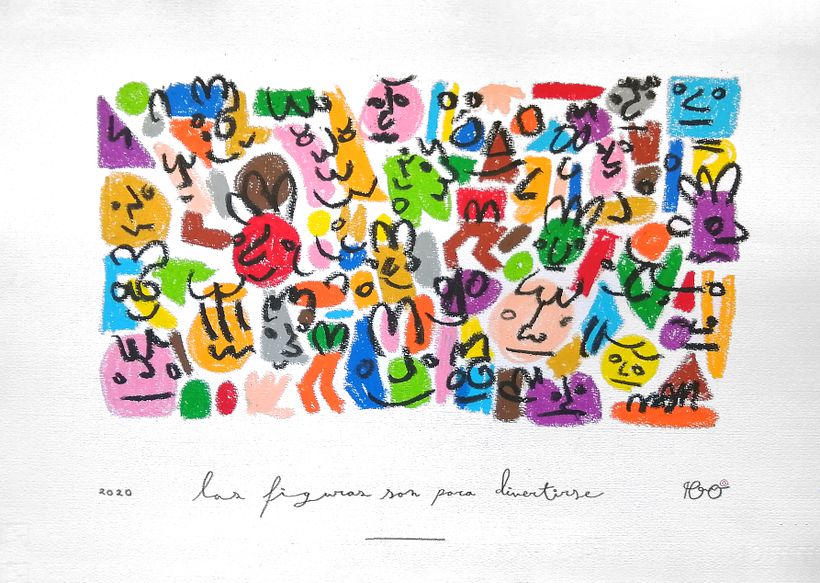 2020 las figuras son para divertirse